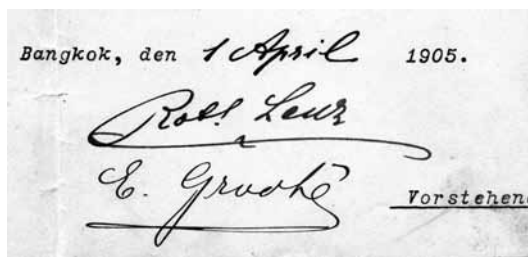 Bangkok, den 1 April 1905.
Robt. Lenz
E. Groote
Vorstehen